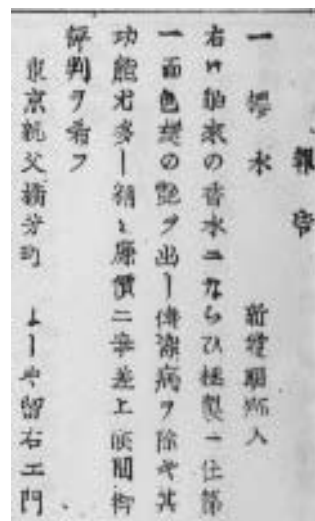 報告
一 櫻水 入
右ハ舶来の香水ニならひ極製ニ仕第
一面色の艶ヲ出し傳染病ヲ除や其
功能尤多し廉價ニ奉差上候間御
評判ヲ希フ
東京親父橋芳町 よしや留右エ門